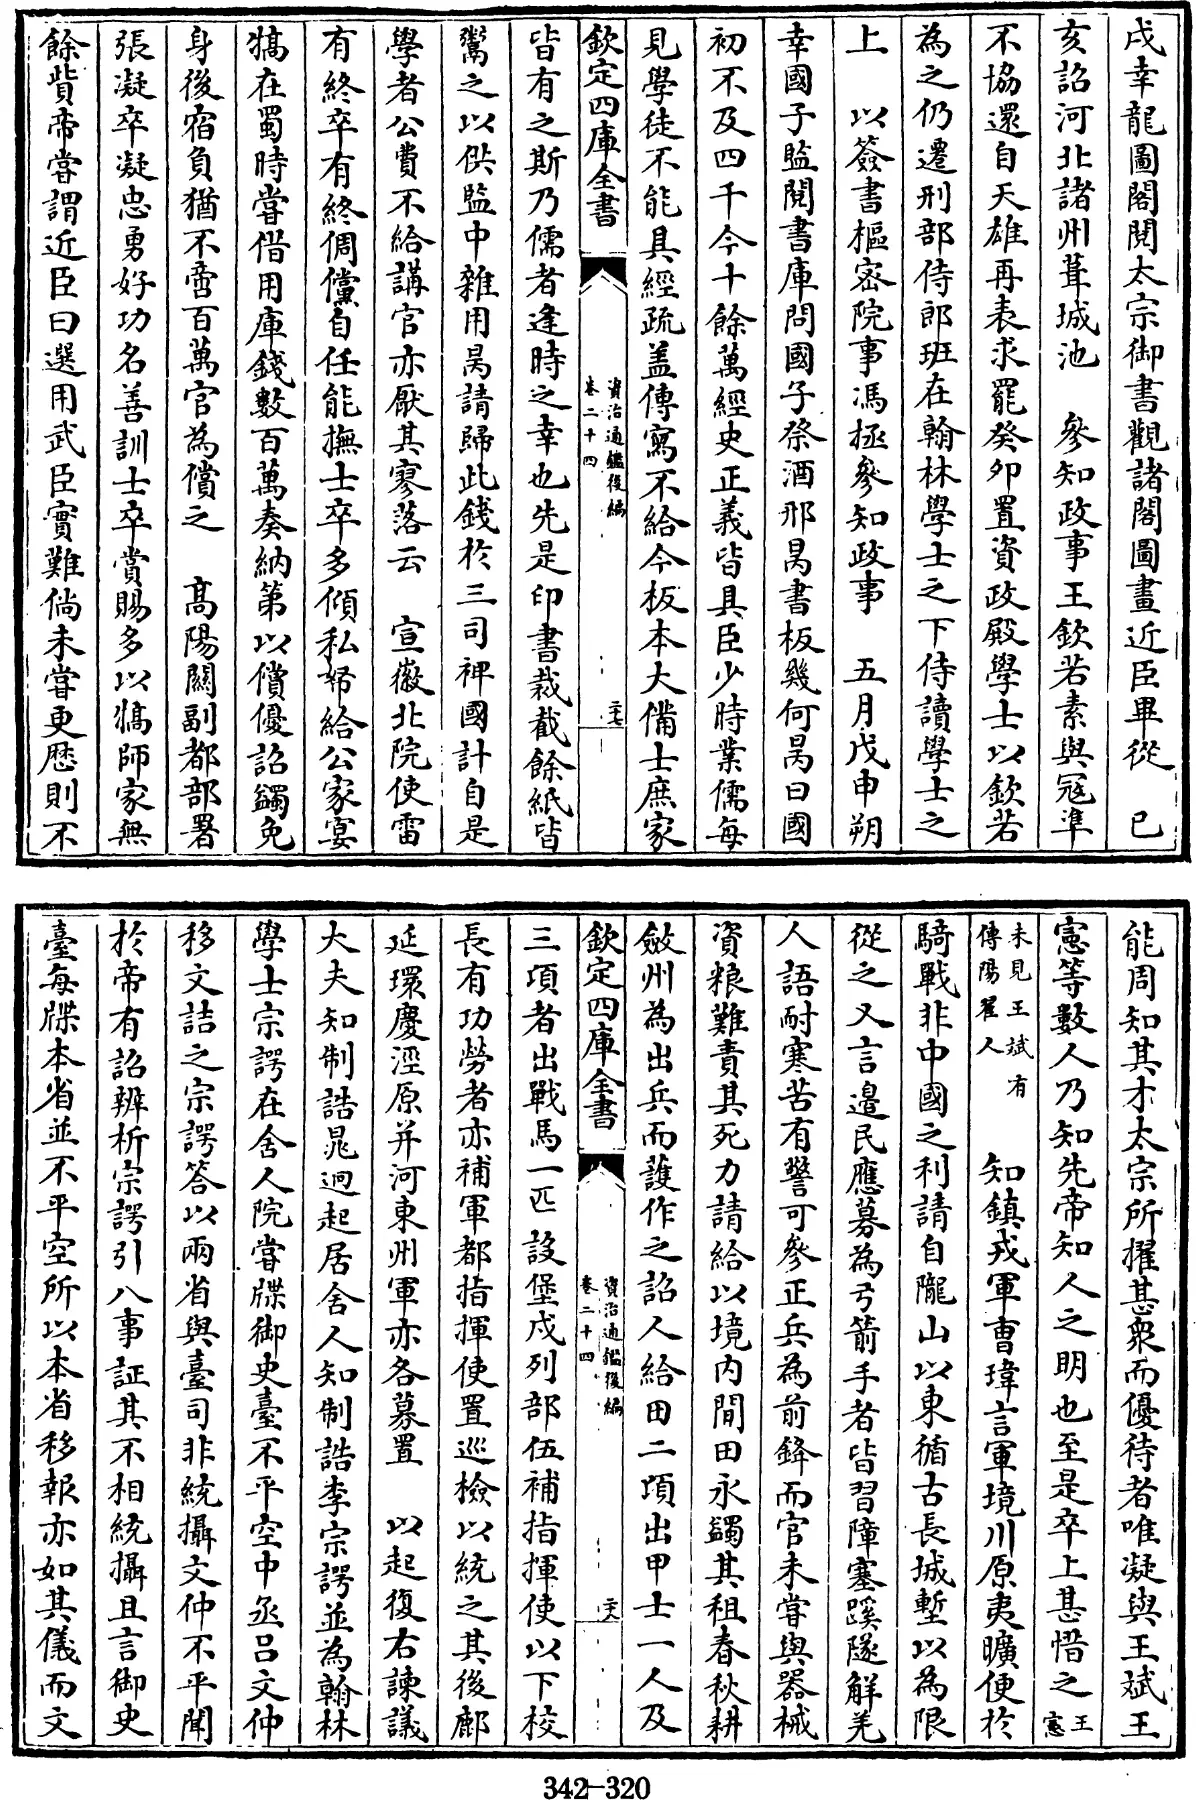 戌幸龍圖閣閱太宗御書觀諸閣圖畫近臣畢從　已
亥詔河北諸州葺城池　參知政事王欽若素與冦準
不協還自天雄再表求罷癸卯置資政殿學士以欽若
為之仍遷刑部侍郎班在翰林學士之下侍讀學士之
上　以簽書樞密院事馮拯參知政事　五月戊申朔
幸國子監閱書庫問國子祭酒邢昺書板幾何昺曰國
初不及四千今十餘萬經史正義皆具臣少時業儒每
見學徒不能具經疏盖傳寫不給今板本大備士庶家
欽定四庫全書
資治通鑑後編
卷二十四
二十七
皆有之斯乃儒者逢時之幸也先是印書裁截餘紙皆
鬻之以供監中雜用昺請歸此錢於三司裨國計自是
學者公費不給講官亦厭其寥落云　宣徽北院使雷
有終卒有終倜儻自任能撫士卒多傾私帑給公家宴
犒在蜀時嘗借用庫錢數百萬奏納第以償優詔蠲免
身後宿負猶不啻百萬官為償之　高陽關副都部署
張凝卒凝忠勇好功名善訓士卒賞賜多以犒師家無
餘貲帝嘗謂近臣曰選用武臣實難倘未嘗更歷則不
能周知其才太宗所擢甚衆而優待者唯凝與王斌王
憲等數人乃知先帝知人之明也至是卒上甚惜之王憲
未見王斌有傳陽翟人　知鎮戎軍曹瑋言軍境川原夷曠便於
騎戰非中國之利請自隴山以東循古長城塹以為限
從之又言邊民應募為弓箭手者皆習障塞蹊隧解羌
人語耐寒苦有警可參正兵為前鋒而官未嘗與器械
資粮難責其死力請給以境內閒田永蠲其租春秋耕
斂州為出兵而護作之詔人給田二頃出甲士一人及
欽定四庫全書
資治通鑑後編
卷二十四
二十八
三頃者出戰馬一匹設堡戍列部伍補指揮使以下校
長有功勞者亦補軍都指揮使置巡檢以統之其後鄜
延環慶涇原并河東州軍亦各募置　以起復右諫議
大夫知制誥晁迥起居舍人知制誥李宗諤並為翰林
學士宗諤在舍人院嘗牒御史臺不平空中丞吕文仲
移文詰之宗諤答以兩省與臺司非統攝文仲不平聞
於帝有詔辨析宗諤引八事証其不相統攝且言御史
臺每牒本省並不平空所以本省移報亦如其儀而文
342-320